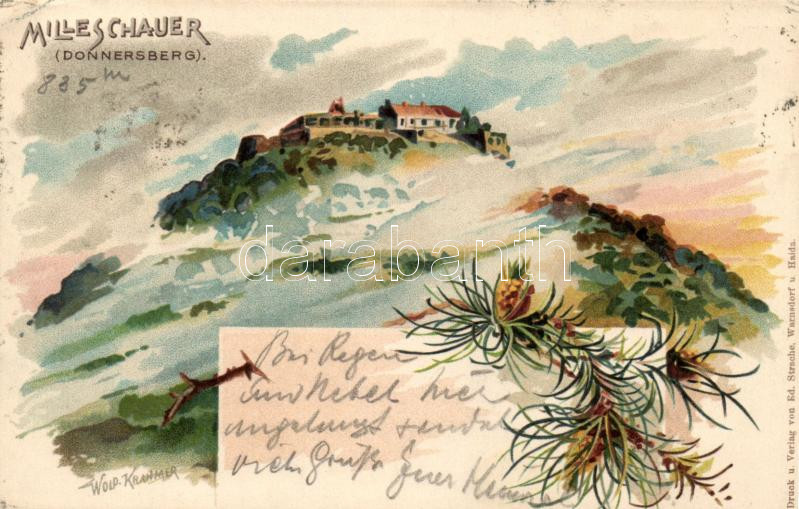 MILLESCHAUER
(DONNERSBERG).
885 m
darabanth
Bei Regen
und Nebel hier
angelangt sendet
viele Grüße Euer
WOLD. KRAMMER
Druck u. Verlag von Ed. Strache, Warnsdorf u. Haida.